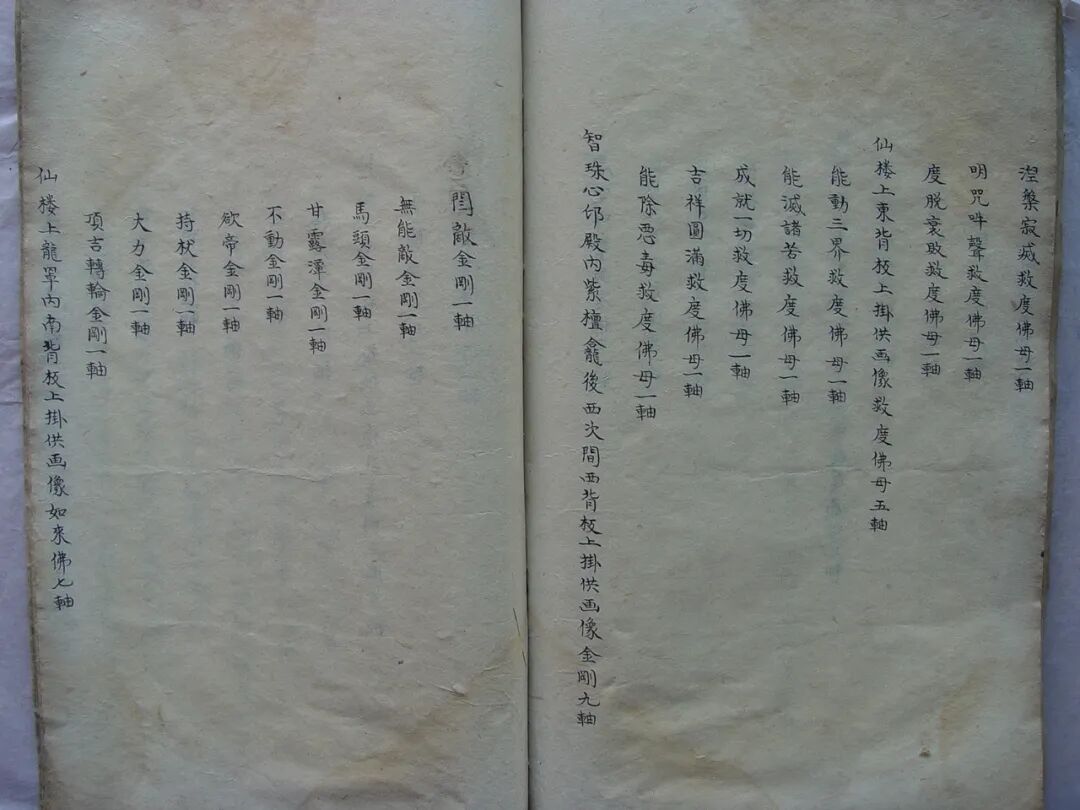 涅槃寂滅救度佛母一軸
明咒吽聲救度佛母一軸
度脫衰敗救度佛母一軸
仙楼上東背板上掛供画像救度佛母五軸
能動三界救度佛母一軸
能滅諸苦救度佛母一軸
成就一切救度佛母一軸
吉祥圓滿救度佛母一軸
能除惡毒救度佛母一軸
智珠心邸殿內紫檀龕後西次間西背板上掛供画像金剛九軸
閆敵金剛一軸
無能敵金剛一軸
馬頭金剛一軸
甘露潭金剛一軸
不動金剛一軸
欲帝金剛一軸
持杖金剛一軸
大力金剛一軸
項吉轉輪金剛一軸
仙楼上龍罩內南背板上掛供画像如來佛七軸